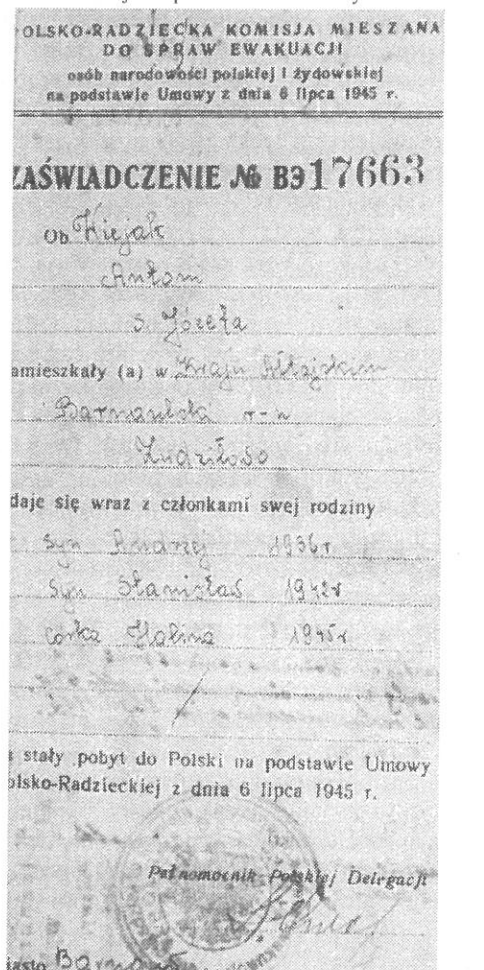 OLSKO-RADZIECKA KOMISJA MIESZANA
DO SPRAW EWAKUACJI
osób narodowości polskiej i żydowskiej
na podstawie Umowy z dnia 6 lipca 1945 r.
ZAŚWIADCZENIE № ВЭ17663
Ob. Kiejak
Antoni
s. Józefa
amieszkały (a) w Kraju Ałtajskim
Barnaulski r-n
Żudziłowo
daje się wraz z członkami swej rodziny
syn Andrzej 1936r
syn Stanisław 1942r
córka Halina 1945r
a stały pobyt do Polski na podstawie Umowy
olsko-Radzieckiej z dnia 6 lipca 1945 r.
Pełnomocnik Polskiej Delegacji
iasto